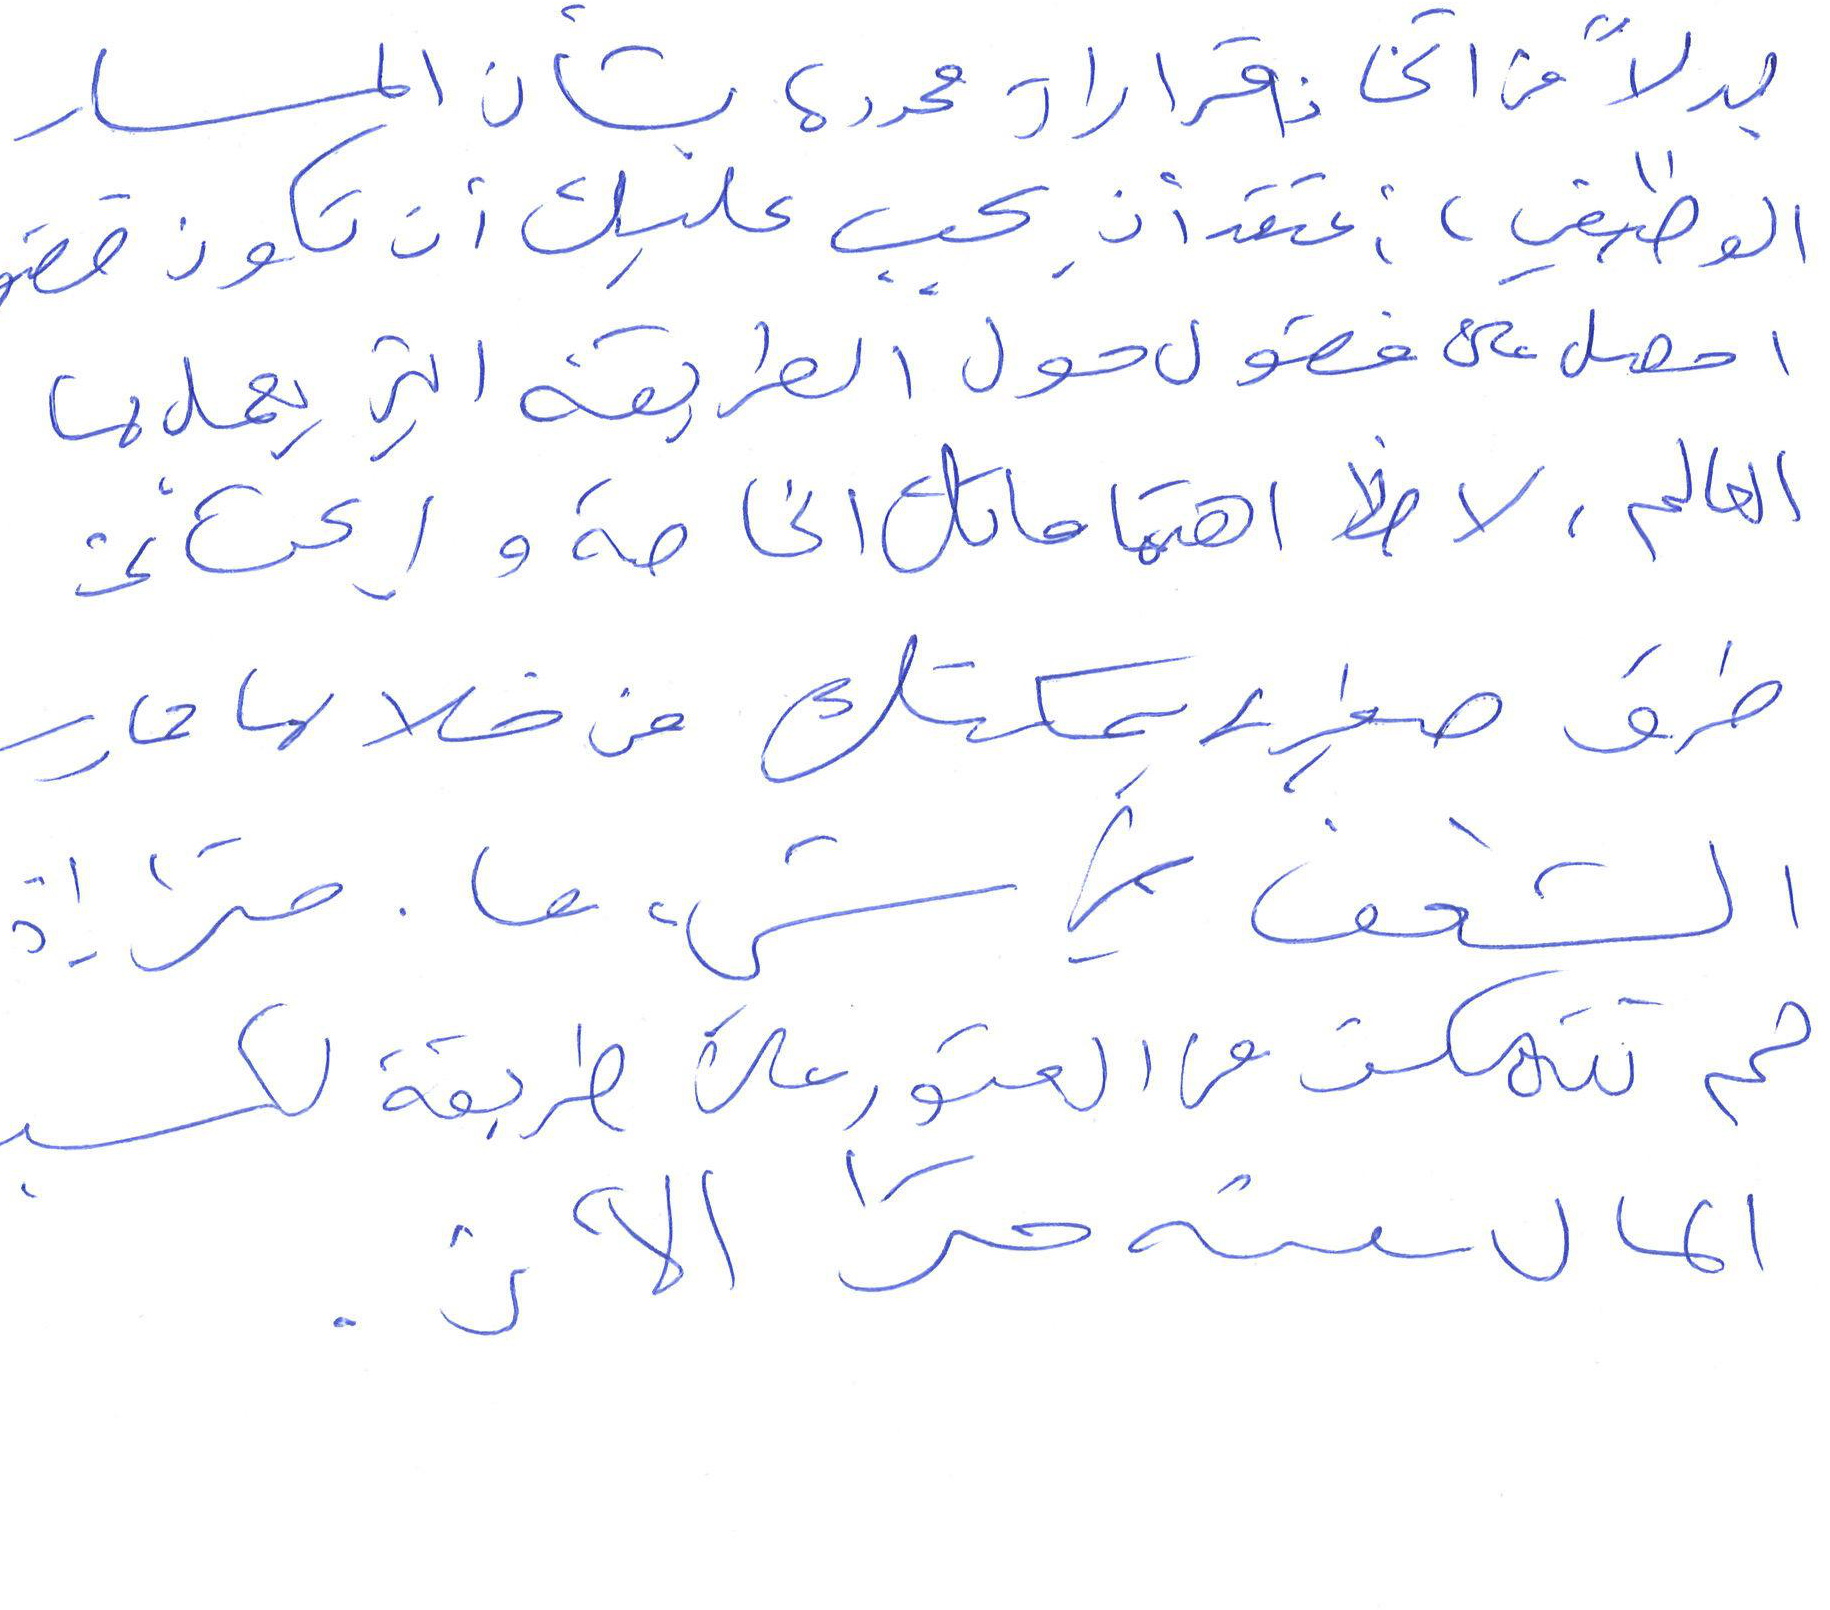 بدلاً من اتخاذ قرارات محددة بشأن المسار
الوظيفي، أعتقد أن يجب عليك أن تكون
احصل على فضول حول الطريقة التي يعمل بها
العالم، لاحظ اهتماماتك الخاصة و ابحث عن
طرق صغيرة يمكنك من خلالها
الشغف بشيء ما. حتى
ثم تتمكن من العثور على طريقة لكسب
المال منه حتى الآن.